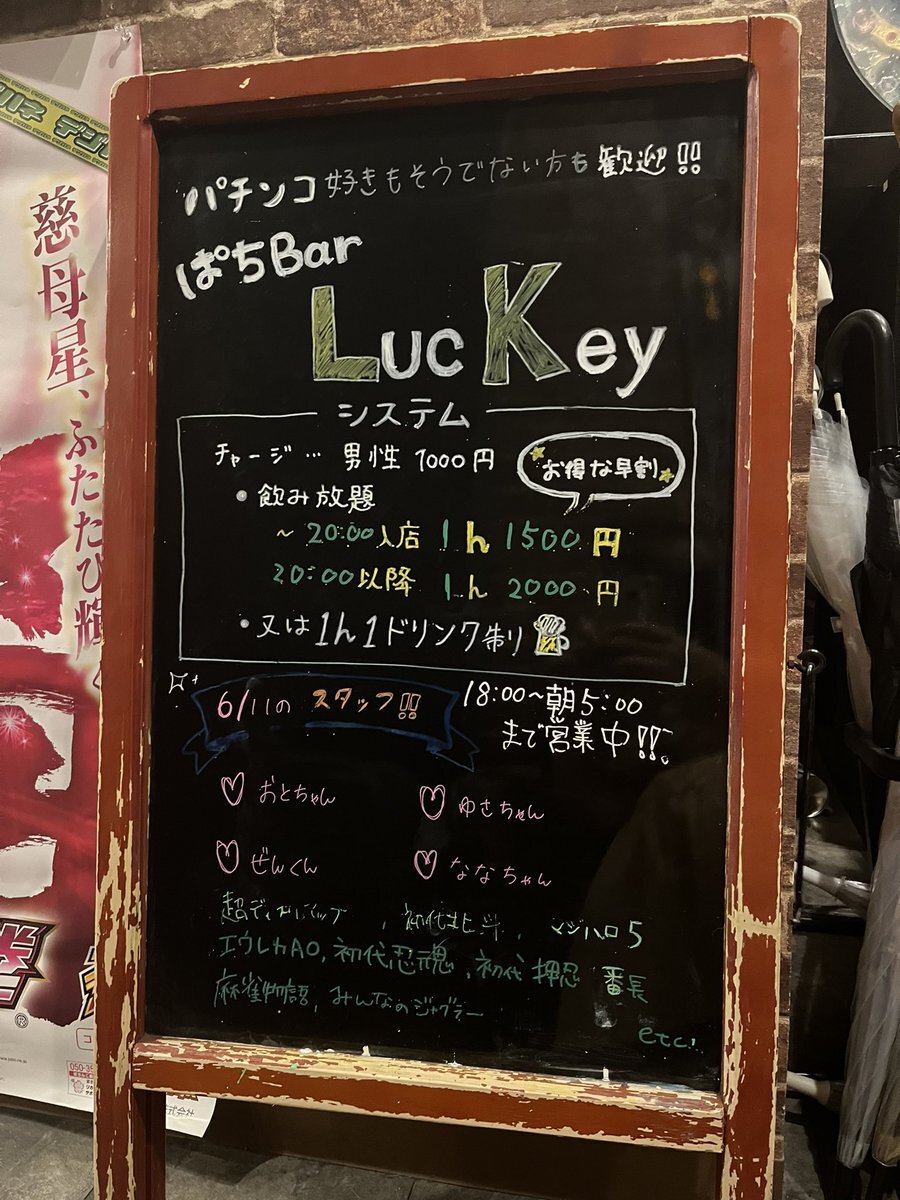 パチンコ好きもそうでない方も歓迎!!
ぱちBar
LucKey
システム
チャージ… 男性 1000円
お得な早割
・飲み放題
~20:00入店 1h 1500円
20:00以降 1h 2000円
・又は1h1ドリンク制り
6/11の スタッフ!!
18:00~朝5:00
まで営業中!!
おとちゃん
ゆさちゃん
ぜんくん
ななちゃん
初代北斗, マジハロ5
エウレカAO, 初代忍魂, 初代 押忍 番長
麻雀物語, みんなのジャグラー
etc...
慈母星、ふたたび輝く
ハネ デジ
050-35
式会社